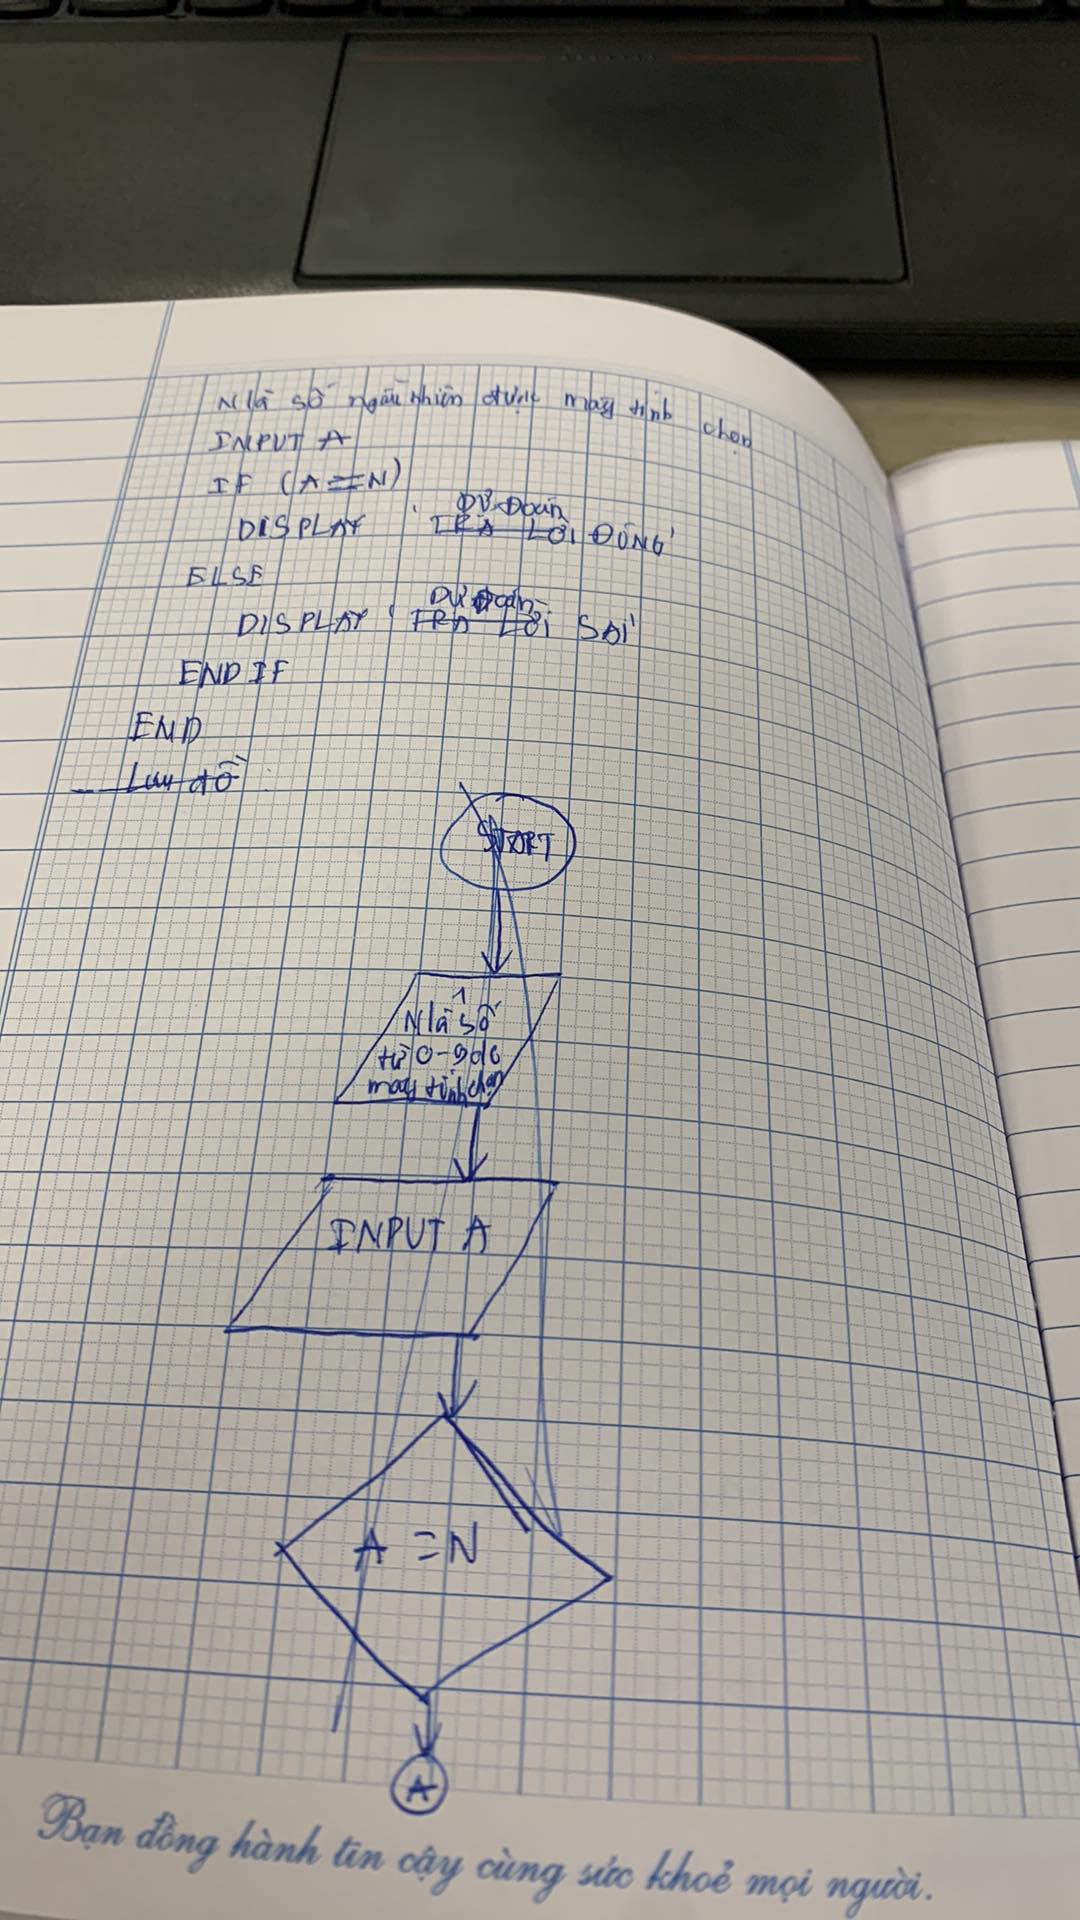 N là số ngẫu nhiên được máy tính chọn
INPUT A
IF (A==N)
Dự Đoán
DISPLAY ' TRẢ LỜI ĐÚNG'
ELSE
Dự đoán
DISPLAY ' TRẢ LỜI SAI'
END IF
END
Lưu đồ :
START
N là 1 số
từ 0-9 do
máy tính chọn
INPUT A
A = N
A
Bạn đồng hành tin cậy cùng sức khoẻ mọi người.